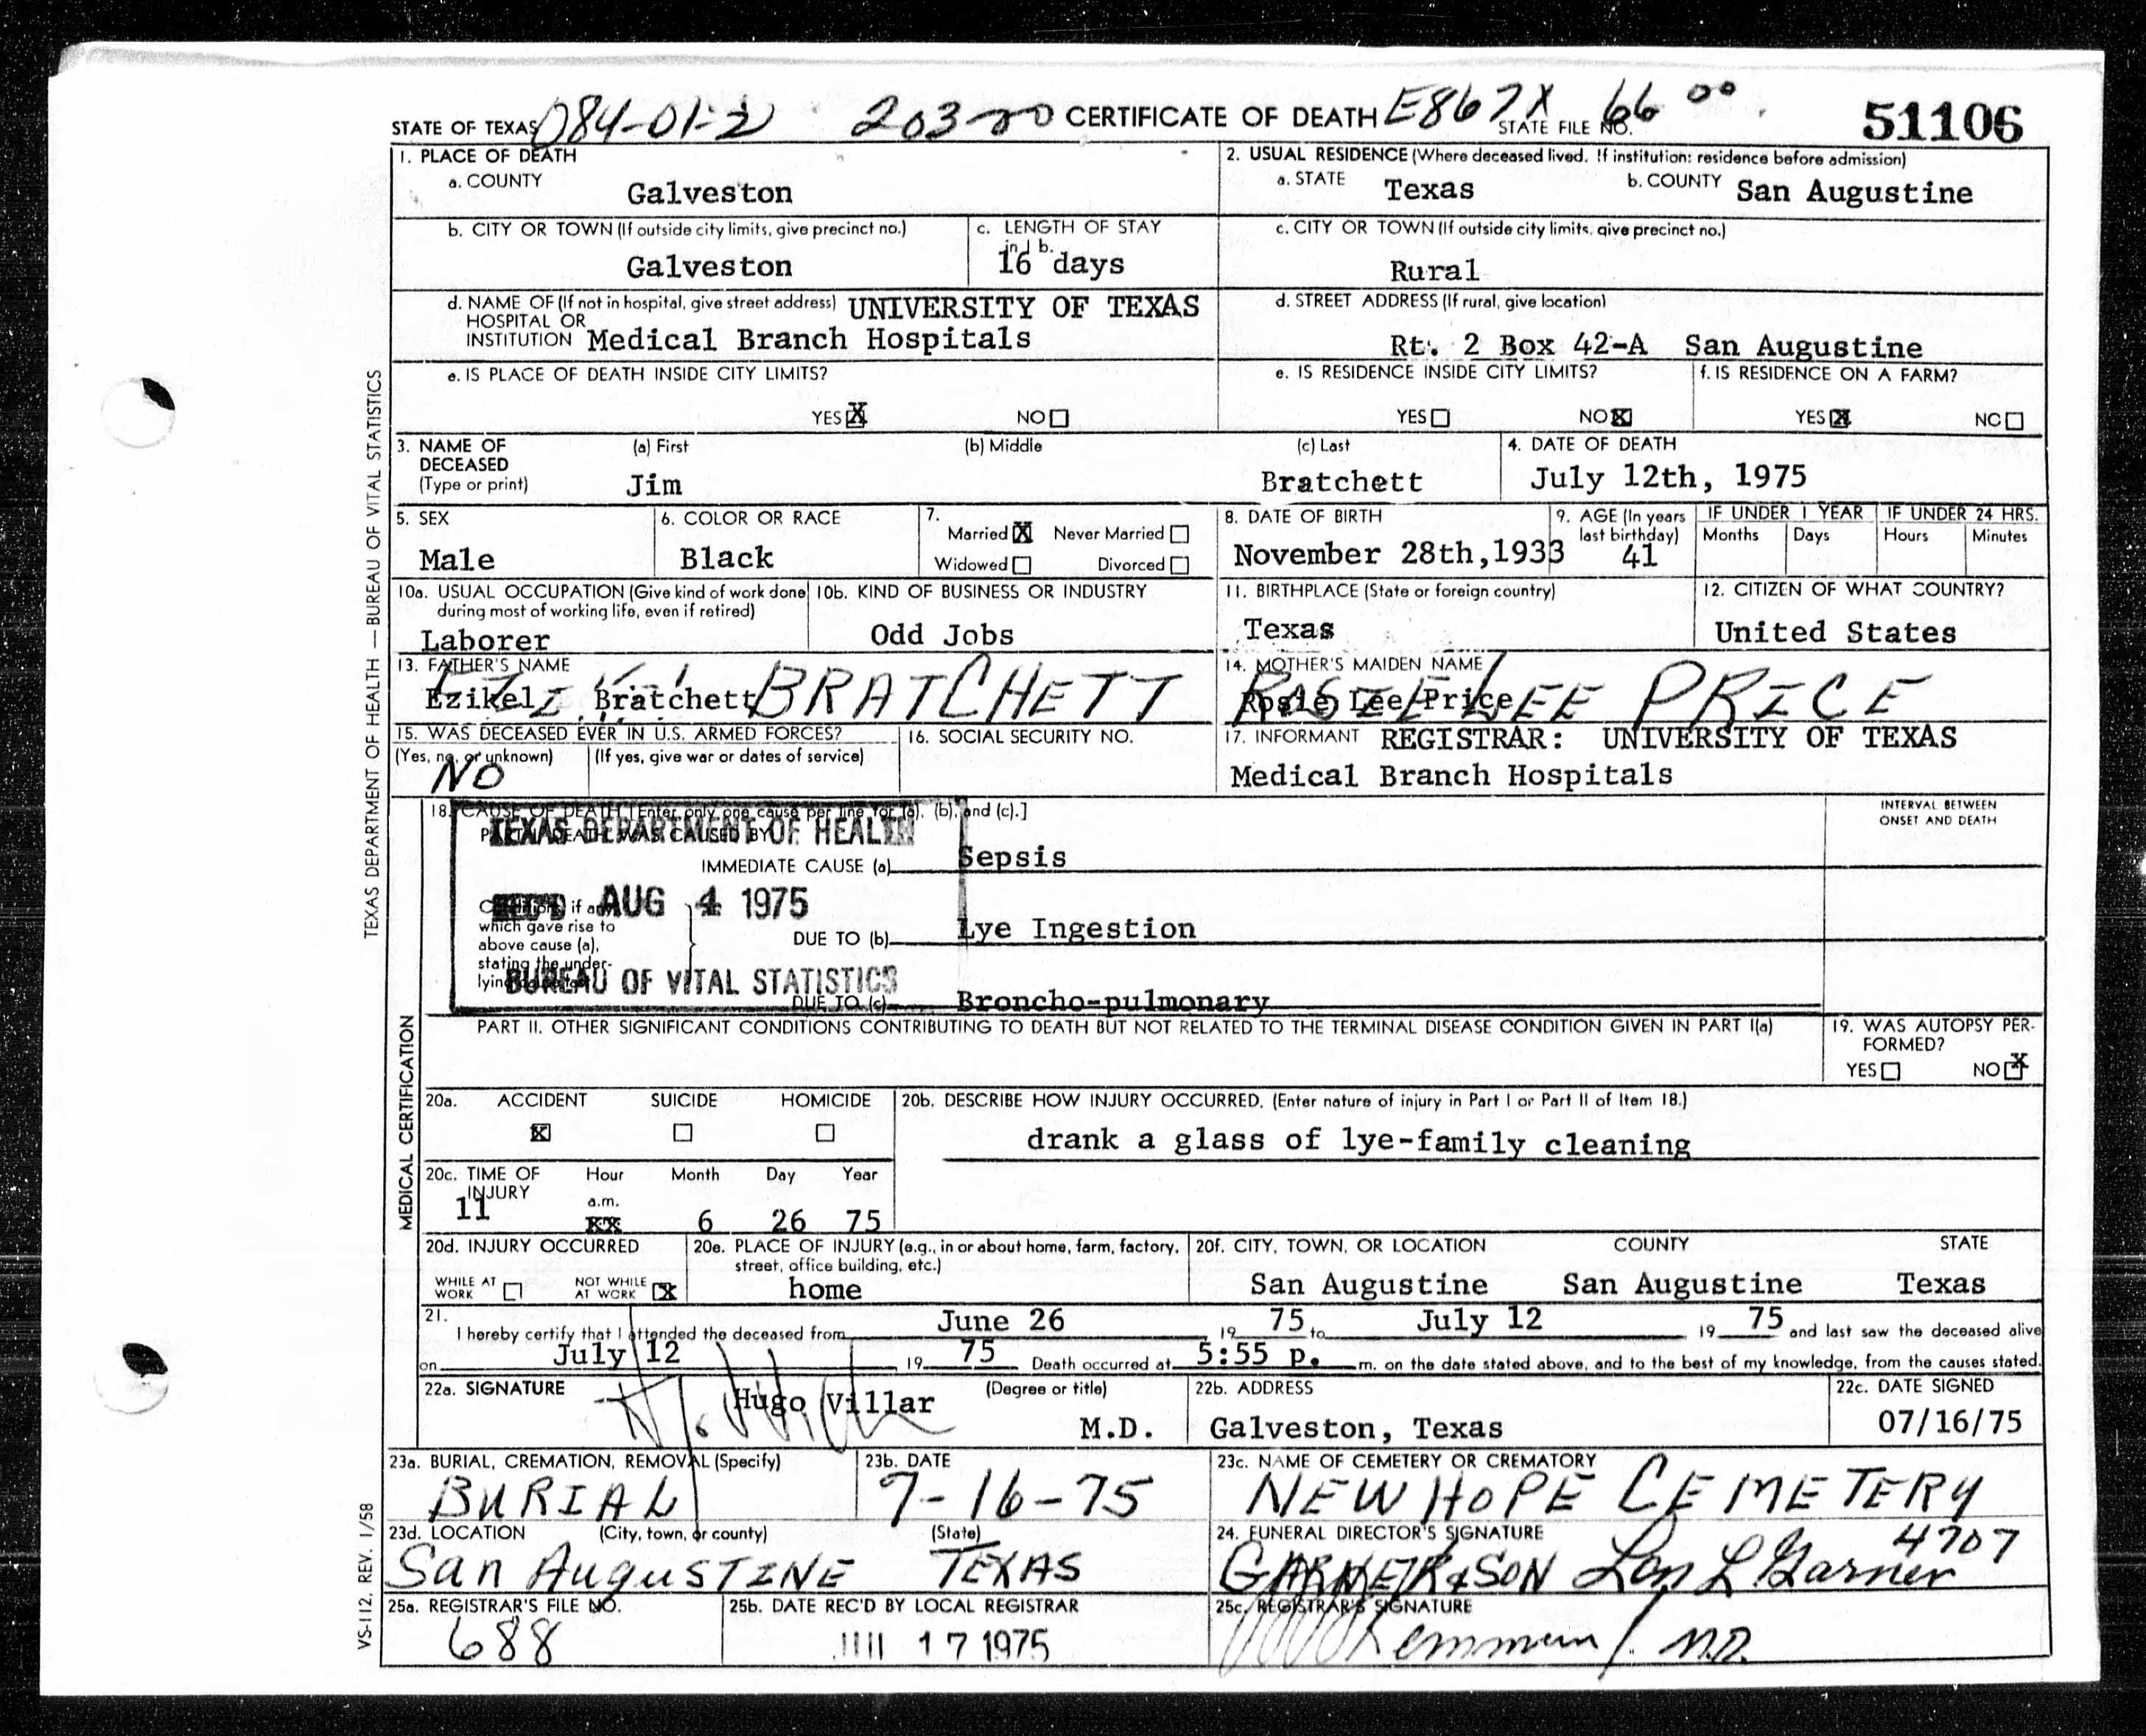 STATE OF TEXAS 084-01-2 203-20 CERTIFICATE OF DEATH E867X STATE FILE NO. 66 00 51106
1. PLACE OF DEATH
a. COUNTY Galveston
2. USUAL RESIDENCE (Where deceased lived. If institution: residence before admission)
a. STATE Texas b. COUNTY San Augustine
b. CITY OR TOWN (If outside city limits, give precinct no.) Galveston
c. LENGTH OF STAY in 1 b. 16 days
c. CITY OR TOWN (If outside city limits, give precinct no.) Rural
d. NAME OF (If not in hospital, give street address) UNIVERSITY OF TEXAS
HOSPITAL OR
INSTITUTION Medical Branch Hospitals
d. STREET ADDRESS (If rural, give location)
Rt. 2 Box 42-A San Augustine
e. IS PLACE OF DEATH INSIDE CITY LIMITS?
YES X NO
e. IS RESIDENCE INSIDE CITY LIMITS?
YES NO X
f. IS RESIDENCE ON A FARM?
YES X NO
3. NAME OF DECEASED (Type or print)
(a) First (b) Middle (c) Last
Jim Bratchett
4. DATE OF DEATH
July 12th, 1975
5. SEX
Male
6. COLOR OR RACE
Black
7.
Married X Never Married
Widowed Divorced
8. DATE OF BIRTH
November 28th,1933
9. AGE (In years last birthday)
41
IF UNDER 1 YEAR IF UNDER 24 HRS.
Months Days Hours Minutes
10a. USUAL OCCUPATION (Give kind of work done during most of working life, even if retired)
Laborer
10b. KIND OF BUSINESS OR INDUSTRY
Odd Jobs
11. BIRTHPLACE (State or foreign country)
Texas
12. CITIZEN OF WHAT COUNTRY?
United States
13. FATHER'S NAME
Ezikel Bratchett BRATCHETT
14. MOTHER'S MAIDEN NAME
Rosie Lee Price ROSIE LEE PRICE
15. WAS DECEASED EVER IN U.S. ARMED FORCES?
(Yes, no, or unknown) (If yes, give war or dates of service)
NO
16. SOCIAL SECURITY NO.
17. INFORMANT REGISTRAR: UNIVERSITY OF TEXAS
Medical Branch Hospitals
18. CAUSE OF DEATH [Enter only one cause per line for (a), (b), and (c).]
PART I. DEATH WAS CAUSED BY
INTERVAL BETWEEN
ONSET AND DEATH
TEXAS DEPARTMENT OF HEALTH
IMMEDIATE CAUSE (a) Sepsis
REC'D AUG 4 1975
Conditions, if any,
which gave rise to
above cause (a),
stating the under-
lying cause last
DUE TO (b) Lye Ingestion
BUREAU OF VITAL STATISTICS
DUE TO (c) Broncho-pulmonary
PART II. OTHER SIGNIFICANT CONDITIONS CONTRIBUTING TO DEATH BUT NOT RELATED TO THE TERMINAL DISEASE CONDITION GIVEN IN PART I(a)
19. WAS AUTOPSY PER-
FORMED?
YES NO X
20a. ACCIDENT SUICIDE HOMICIDE
X
20b. DESCRIBE HOW INJURY OCCURRED. (Enter nature of injury in Part I or Part II of Item 18.)
drank a glass of lye-family cleaning
20c. TIME OF INJURY Hour Month Day Year
11 a.m. xx 6 26 75
20d. INJURY OCCURRED
WHILE AT WORK NOT WHILE AT WORK X
20e. PLACE OF INJURY (e.g., in or about home, farm, factory, street, office building, etc.)
home
20f. CITY, TOWN, OR LOCATION COUNTY STATE
San Augustine San Augustine Texas
21.
I hereby certify that I attended the deceased from June 26 19 75 to July 12 19 75 and last saw the deceased alive
on July 12 19 75 Death occurred at 5:55 p. m. on the date stated above, and to the best of my knowledge, from the causes stated.
22a. SIGNATURE (Degree or title)
Hugo Villar M.D.
22b. ADDRESS
Galveston, Texas
22c. DATE SIGNED
07/16/75
23a. BURIAL, CREMATION, REMOVAL (Specify)
BURIAL
23b. DATE
7-16-75
23c. NAME OF CEMETERY OR CREMATORY
NEW HOPE CEMETERY
23d. LOCATION (City, town, or county) (State)
San AugusTINE TEXAS
24. FUNERAL DIRECTOR'S SIGNATURE 4707
GARNER & SON Lon L Garner
25a. REGISTRAR'S FILE NO.
688
25b. DATE REC'D BY LOCAL REGISTRAR
JUL 17 1975
25c. REGISTRAR'S SIGNATURE
M.D.
TEXAS DEPARTMENT OF HEALTH — BUREAU OF VITAL STATISTICS
MEDICAL CERTIFICATION
VS-112, REV. 1/58